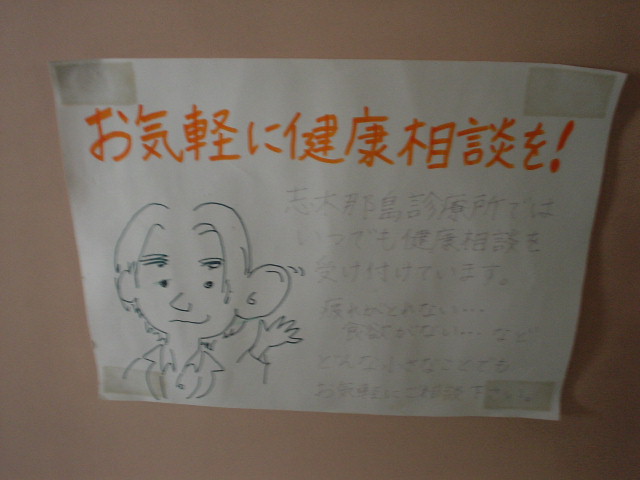 お気軽に健康相談を！
志木那島診療所では
いつでも健康相談を
受け付けています。
疲れがとれない…
食欲がない… など
どんな小さなことでも
お気軽にご相談下さい。